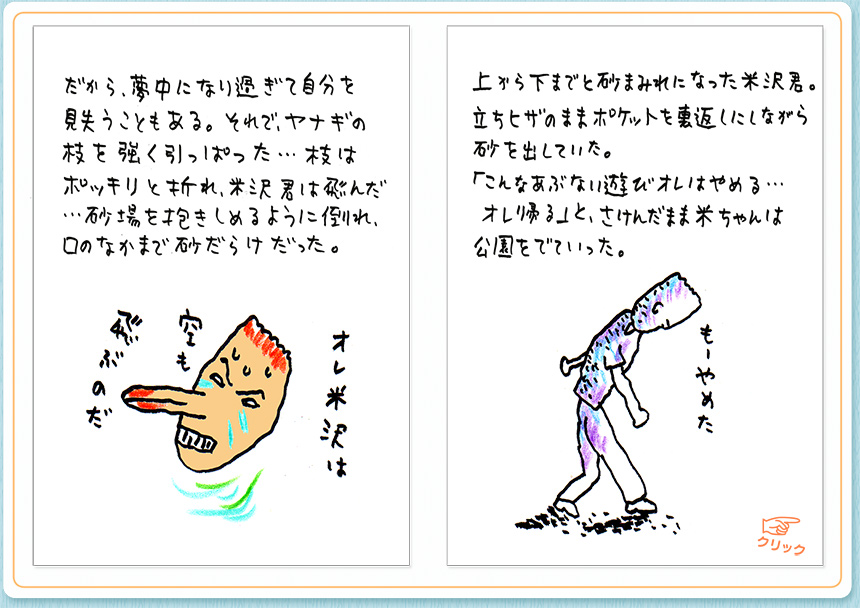 だから、夢中になり過ぎて自分を
見失うこともある。それで、ヤナギの
枝を強く引っぱった…枝は
ポッキリと折れ、米沢君は飛んだ
…砂場を抱きしめるように倒れ、
口のなかまで砂だらけだった。
オレ米沢は
空も
飛ぶのだ
上から下までと砂まみれになった米沢君。
立ちヒザのままポケットを裏返しにしながら
砂を出していた。
「こんなあぶない遊びオレはやめる…
オレ帰る」と、さけんだまま米ちゃんは
公園をでていった。
もーやめた
クリック